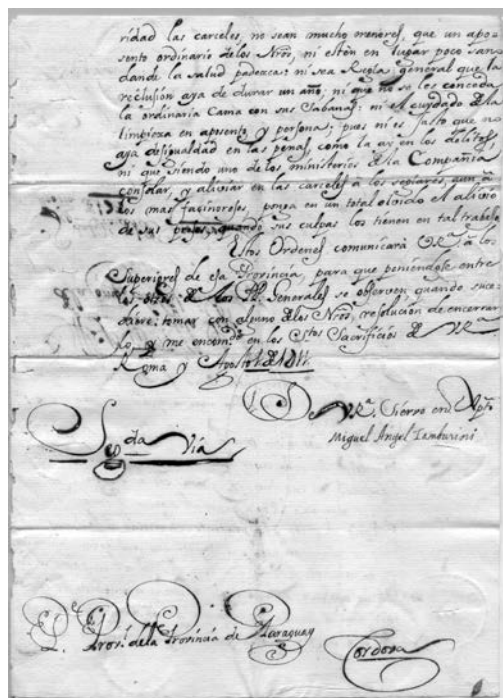 ridad las carceles, no sean mucho menores, que un apo-
sento ordinario de los Nros, ni estèn en lugar poco sano
donde la salud padezca: ni sea Regla general que la
reclusion aya de durar un año; ni que no se les conceda
la ordinaria Cama con sus Sabanas: ni el cuydado de la
limpieza en aposento y persona; pues ni es justo que no
aya desigualdad en las penas, como la ay en los delitos,
ni que siendo uno de los ministerios de la Compañia
consolar, y aliviar en las carceles a los seglares, aun a
los mas facinorosos, ponga en un total olvido el alivio
de sus presos, quando sus culpas los tienen en tal trabajo
Estos Ordenes comunicarà VRa. a los
Superiores de esa Provincia, para que poniendose entre
los otros de los PP. Generales se observen quando suce-
diere, tomar con alguno de los Nros, resolucion de encerrar
lo, y me encomdo. en los Stos Sacrificios de VRa
Roma y Agosto
De VRa. Siervo en Xpto.
Miguel Angel Tamburini
Sda via
P. Provl. de la Provincia de Paraguay
Cordova